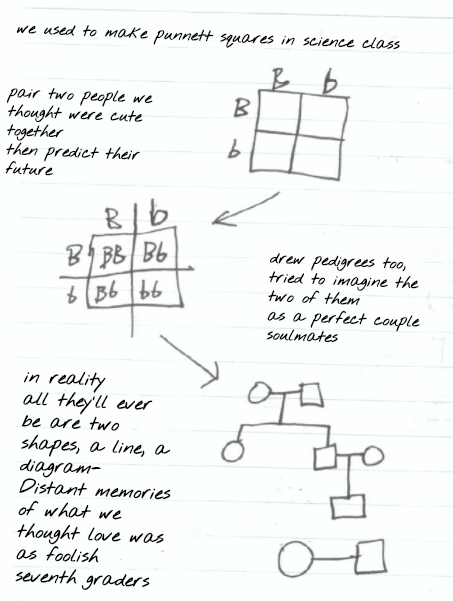 we used to make punnett squares in science class
B b
pair two people we
thought were cute
together
then predict their
future
B
b
B b
B BB Bb
b Bb bb
drew pedigrees too,
tried to imagine the
two of them
as a perfect couple
soulmates
in reality
all they'll ever
be are two
shapes, a line, a
diagram-
Distant memories
of what we
thought love was
as foolish
seventh graders